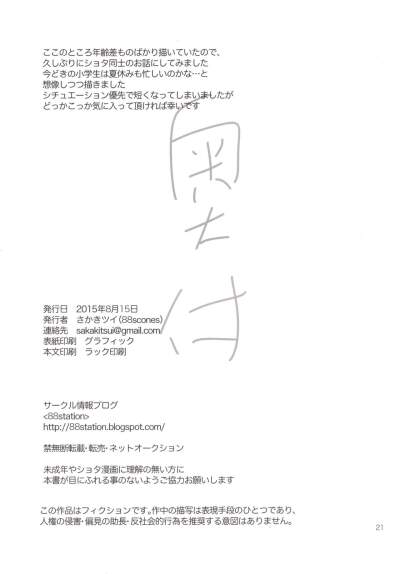 ここのところ年齢差ものばかり描いていたので、
久しぶりにショタ同士のお話にしてみました
今どきの小学生は夏休みも忙しいのかな…と
想像しつつ描きました
シチュエーション優先で短くなってしまいましたが
どっかこっか気に入って頂ければ幸いです
奥付
発行日　2015年8月15日
発行者　さかきツイ（88scones）
連絡先　sakakitsui@gmail.com
表紙印刷　グラフィック
本文印刷　ラック印刷
サークル情報ブログ
<88station>
http://88station.blogspot.com/
禁無断転載・転売・ネットオークション
未成年やショタ漫画に理解の無い方に
本書が目にふれる事のないようご協力お願いします
この作品はフィクションです。作中の描写は表現手段のひとつであり、
人権の侵害・偏見の助長・反社会的行為を推奨する意図はありません。
21